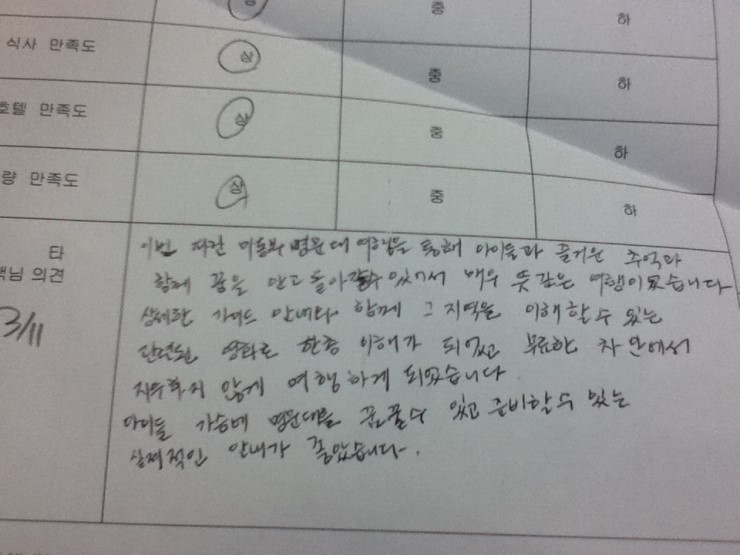 상 중 하
식사 만족도 상 중 하
호텔 만족도 상 중 하
량 만족도 상 중 하
타
객님 의견
3/11
이번 미동부 명문대 여행을 통해 아이들과 즐거운 추억과
함께 꿈을 안고 돌아갈수 있어서 매우 뜻 깊은 여행이었습니다
상세한 가이드 안내와 함께 그 지역을 이해할 수 있는
관련된 영화로 한층 이해가 되었고 무료한 차 안에서
지루하지 않게 여행하게 되었습니다.
아이들 가슴에 명문대를 꿈꿀수 있고 준비할 수 있는
실제적인 안내가 좋았습니다.